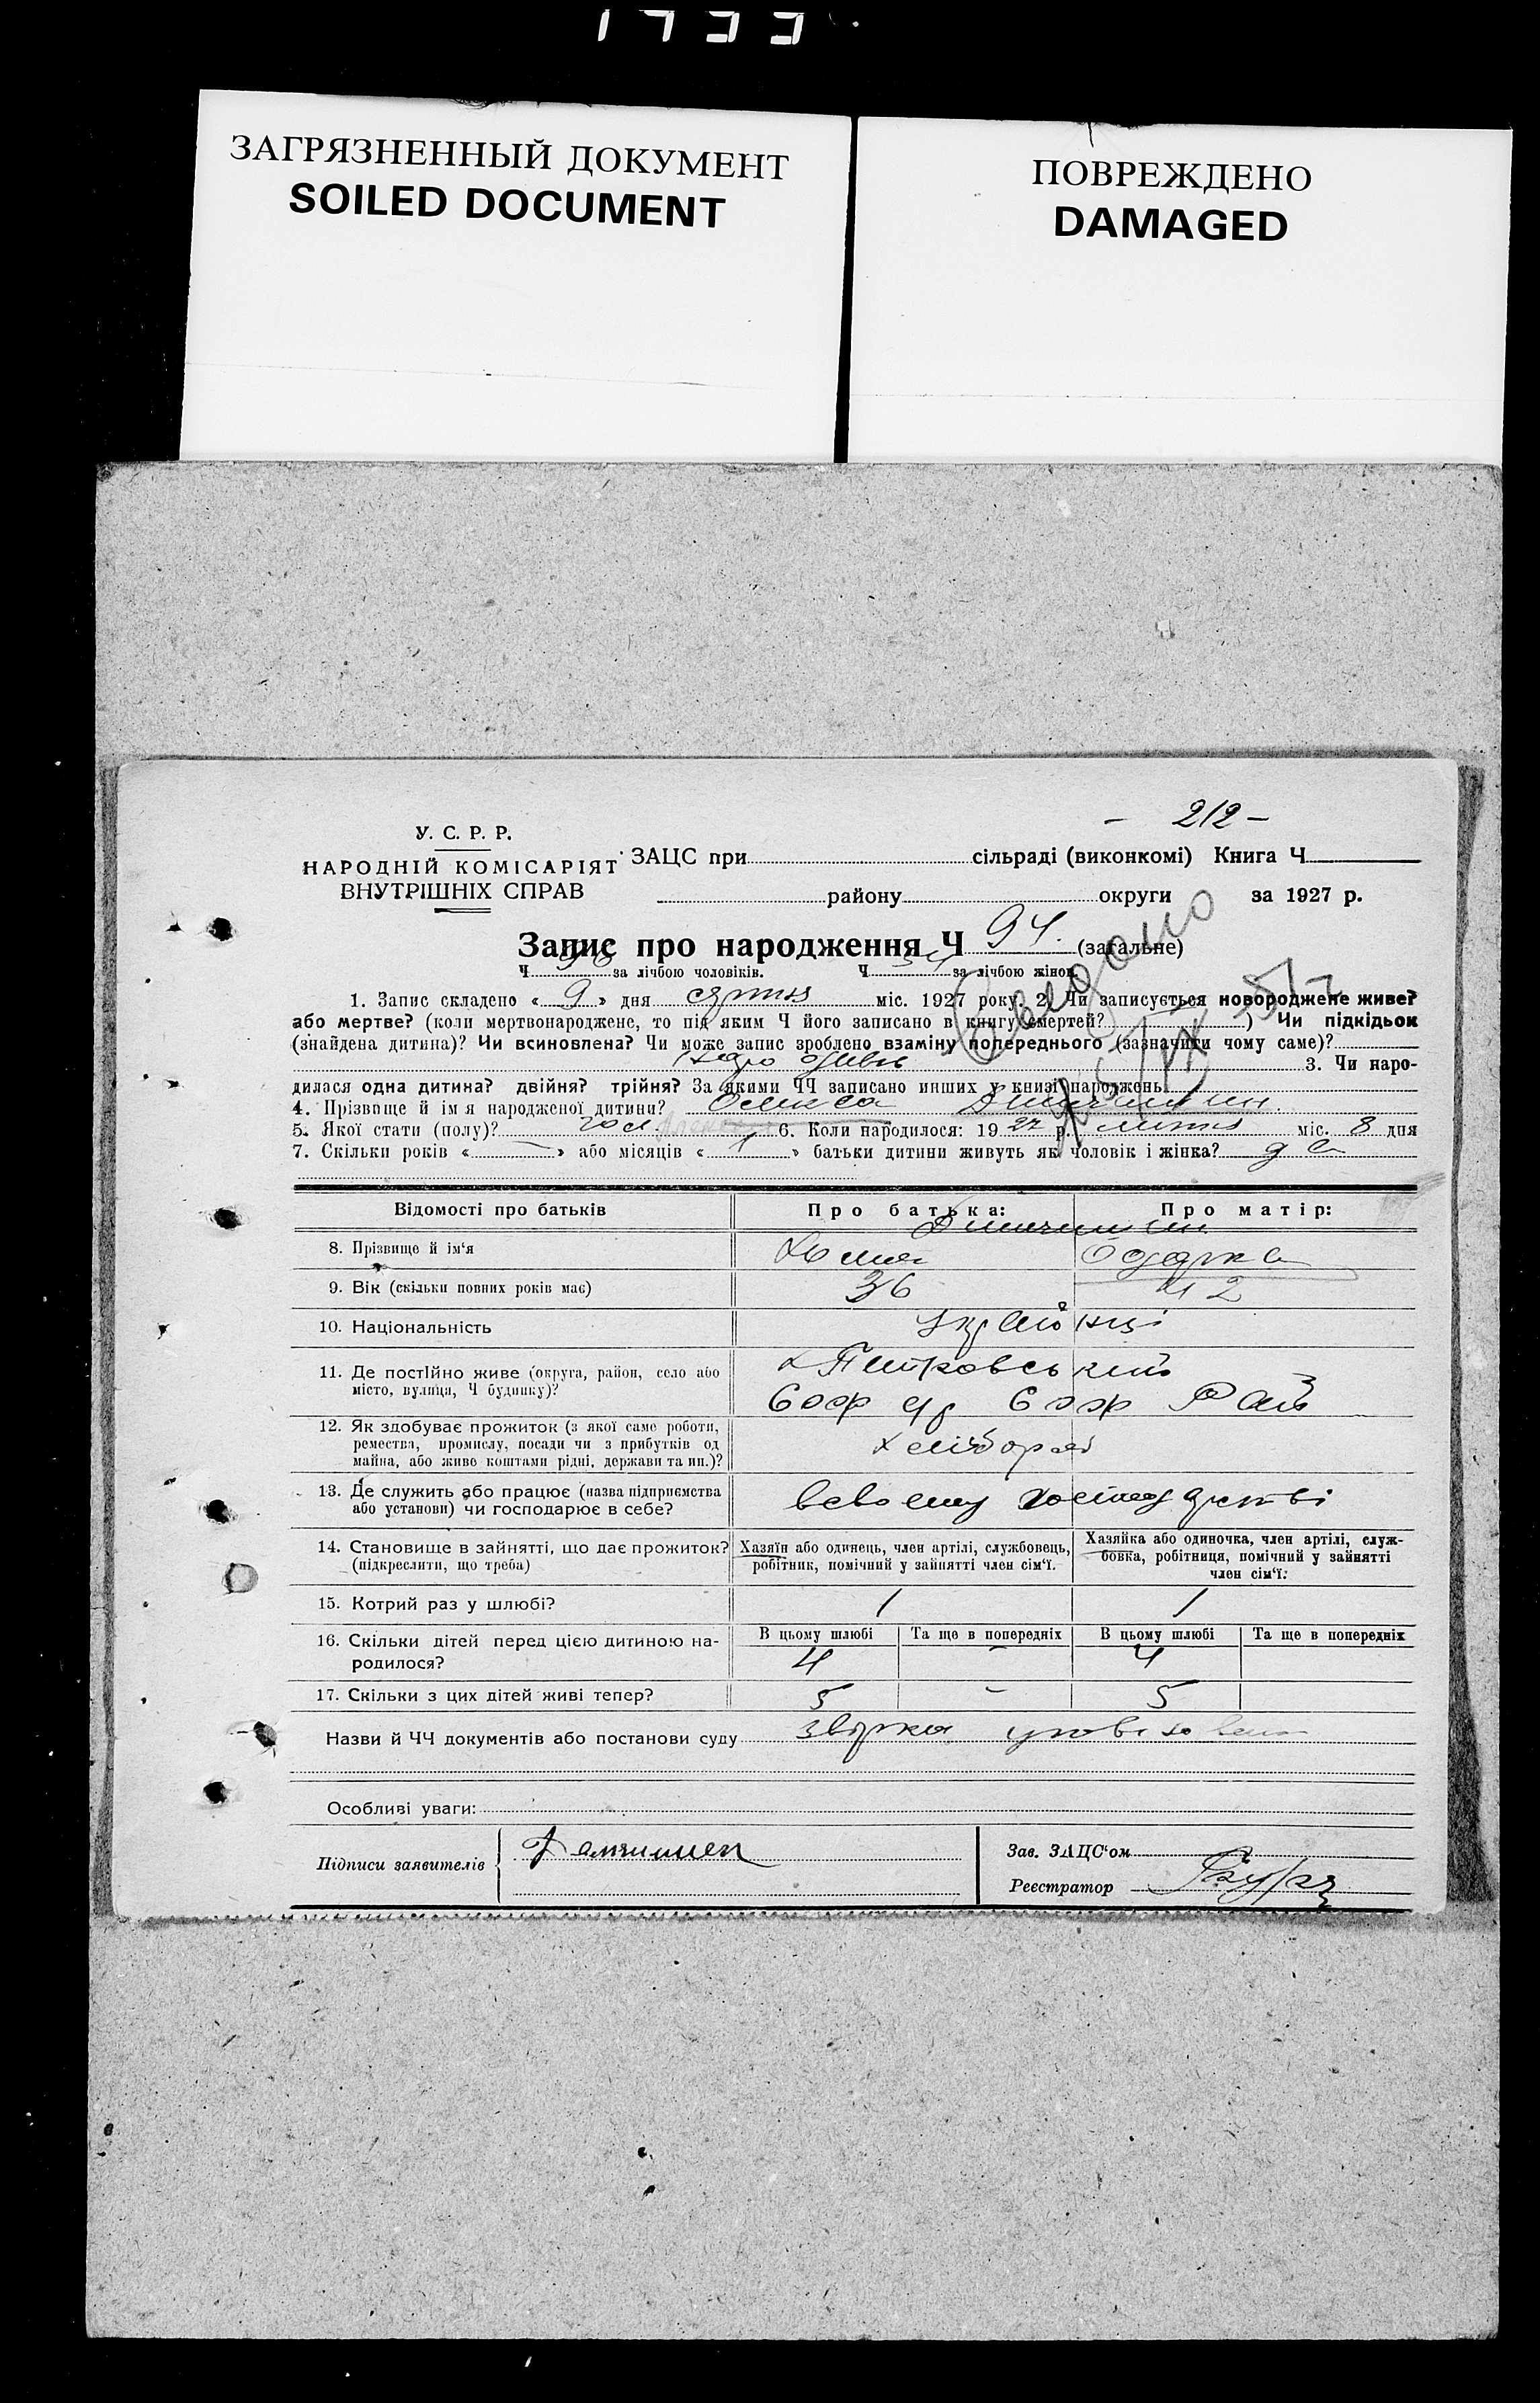 1733
ЗАГРЯЗНЕННЫЙ ДОКУМЕНТ
SOILED DOCUMENT
ПОВРЕЖДЕНО
DAMAGED
- 212 -
У. С. Р. Р.
НАРОДНІЙ КОМІСАРІЯТ
ВНУТРІШНІХ СПРАВ
ЗАЦС при сільраді (виконкомі) Книга Ч
району округи за 1927 р.
Запис про народження Ч 94. (загальне)
Ч за лічбою чоловіків. Ч 34 за лічбою жінок.
1. Запис складено « 9 » дня міс. 1927 року. 2. Чи записується новороджене живе?
або мертве? (коли мертвонароджене, то під яким Ч його записано в книгу смертей? ) Чи підкідьок
(знайдена дитина)? Чи всиновлена? Чи може запис зроблено взаміну попереднього (зазначити чому саме)?
3. Чи наро-
дилася одна дитина? двійня? трійня? За якими ЧЧ записано инших у книзі народжень
4. Прізвище й ім'я народженої дитини? Олекса
5. Якої стати (полу)? чол. 6. Коли народилося: 19 27 р. міс. 8 дня
7. Скільки років « — » або місяців « » батьки дитини живуть як чоловік і жінка?
Відомості про батьків Про батька: Про матір:
8. Прізвище й ім'я Хома Одарка
9. Вік (скільки повних років має) 36 42
10. Національність Українці
11. Де постійно живе (округа, район, село або х Петровський
місто, вулиця, Ч будинку)?
12. Як здобуває прожиток (з якої саме роботи,
ремества, промислу, посади чи з прибутків од хлібороб
майна, або живе коштами рідні, держави та ин.)?
13. Де служить або працює (назва підприємства всвоєму господарстві
або установи) чи господарює в себе?
14. Становище в зайнятті, що дає прожиток? Хазяїн або одинець, член артілі, службовець, Хазяйка або одиночка, член артілі, служ-
(підкреслити, що треба) робітник, помічний у зайнятті член сім'ї. бовка, робітниця, помічний у зайнятті
член сім'ї.
15. Котрий раз у шлюбі? 1 1
16. Скільки дітей перед цією дитиною на- В цьому шлюбі Та ще в попередніх В цьому шлюбі Та ще в попередніх
родилося? 4 - 4
17. Скільки з цих дітей живі тепер? 5 - 5
Назви й ЧЧ документів або постанови суду
Особливі уваги:
Підписи заявителів Зав. ЗАЦС'ом
Реєстратор